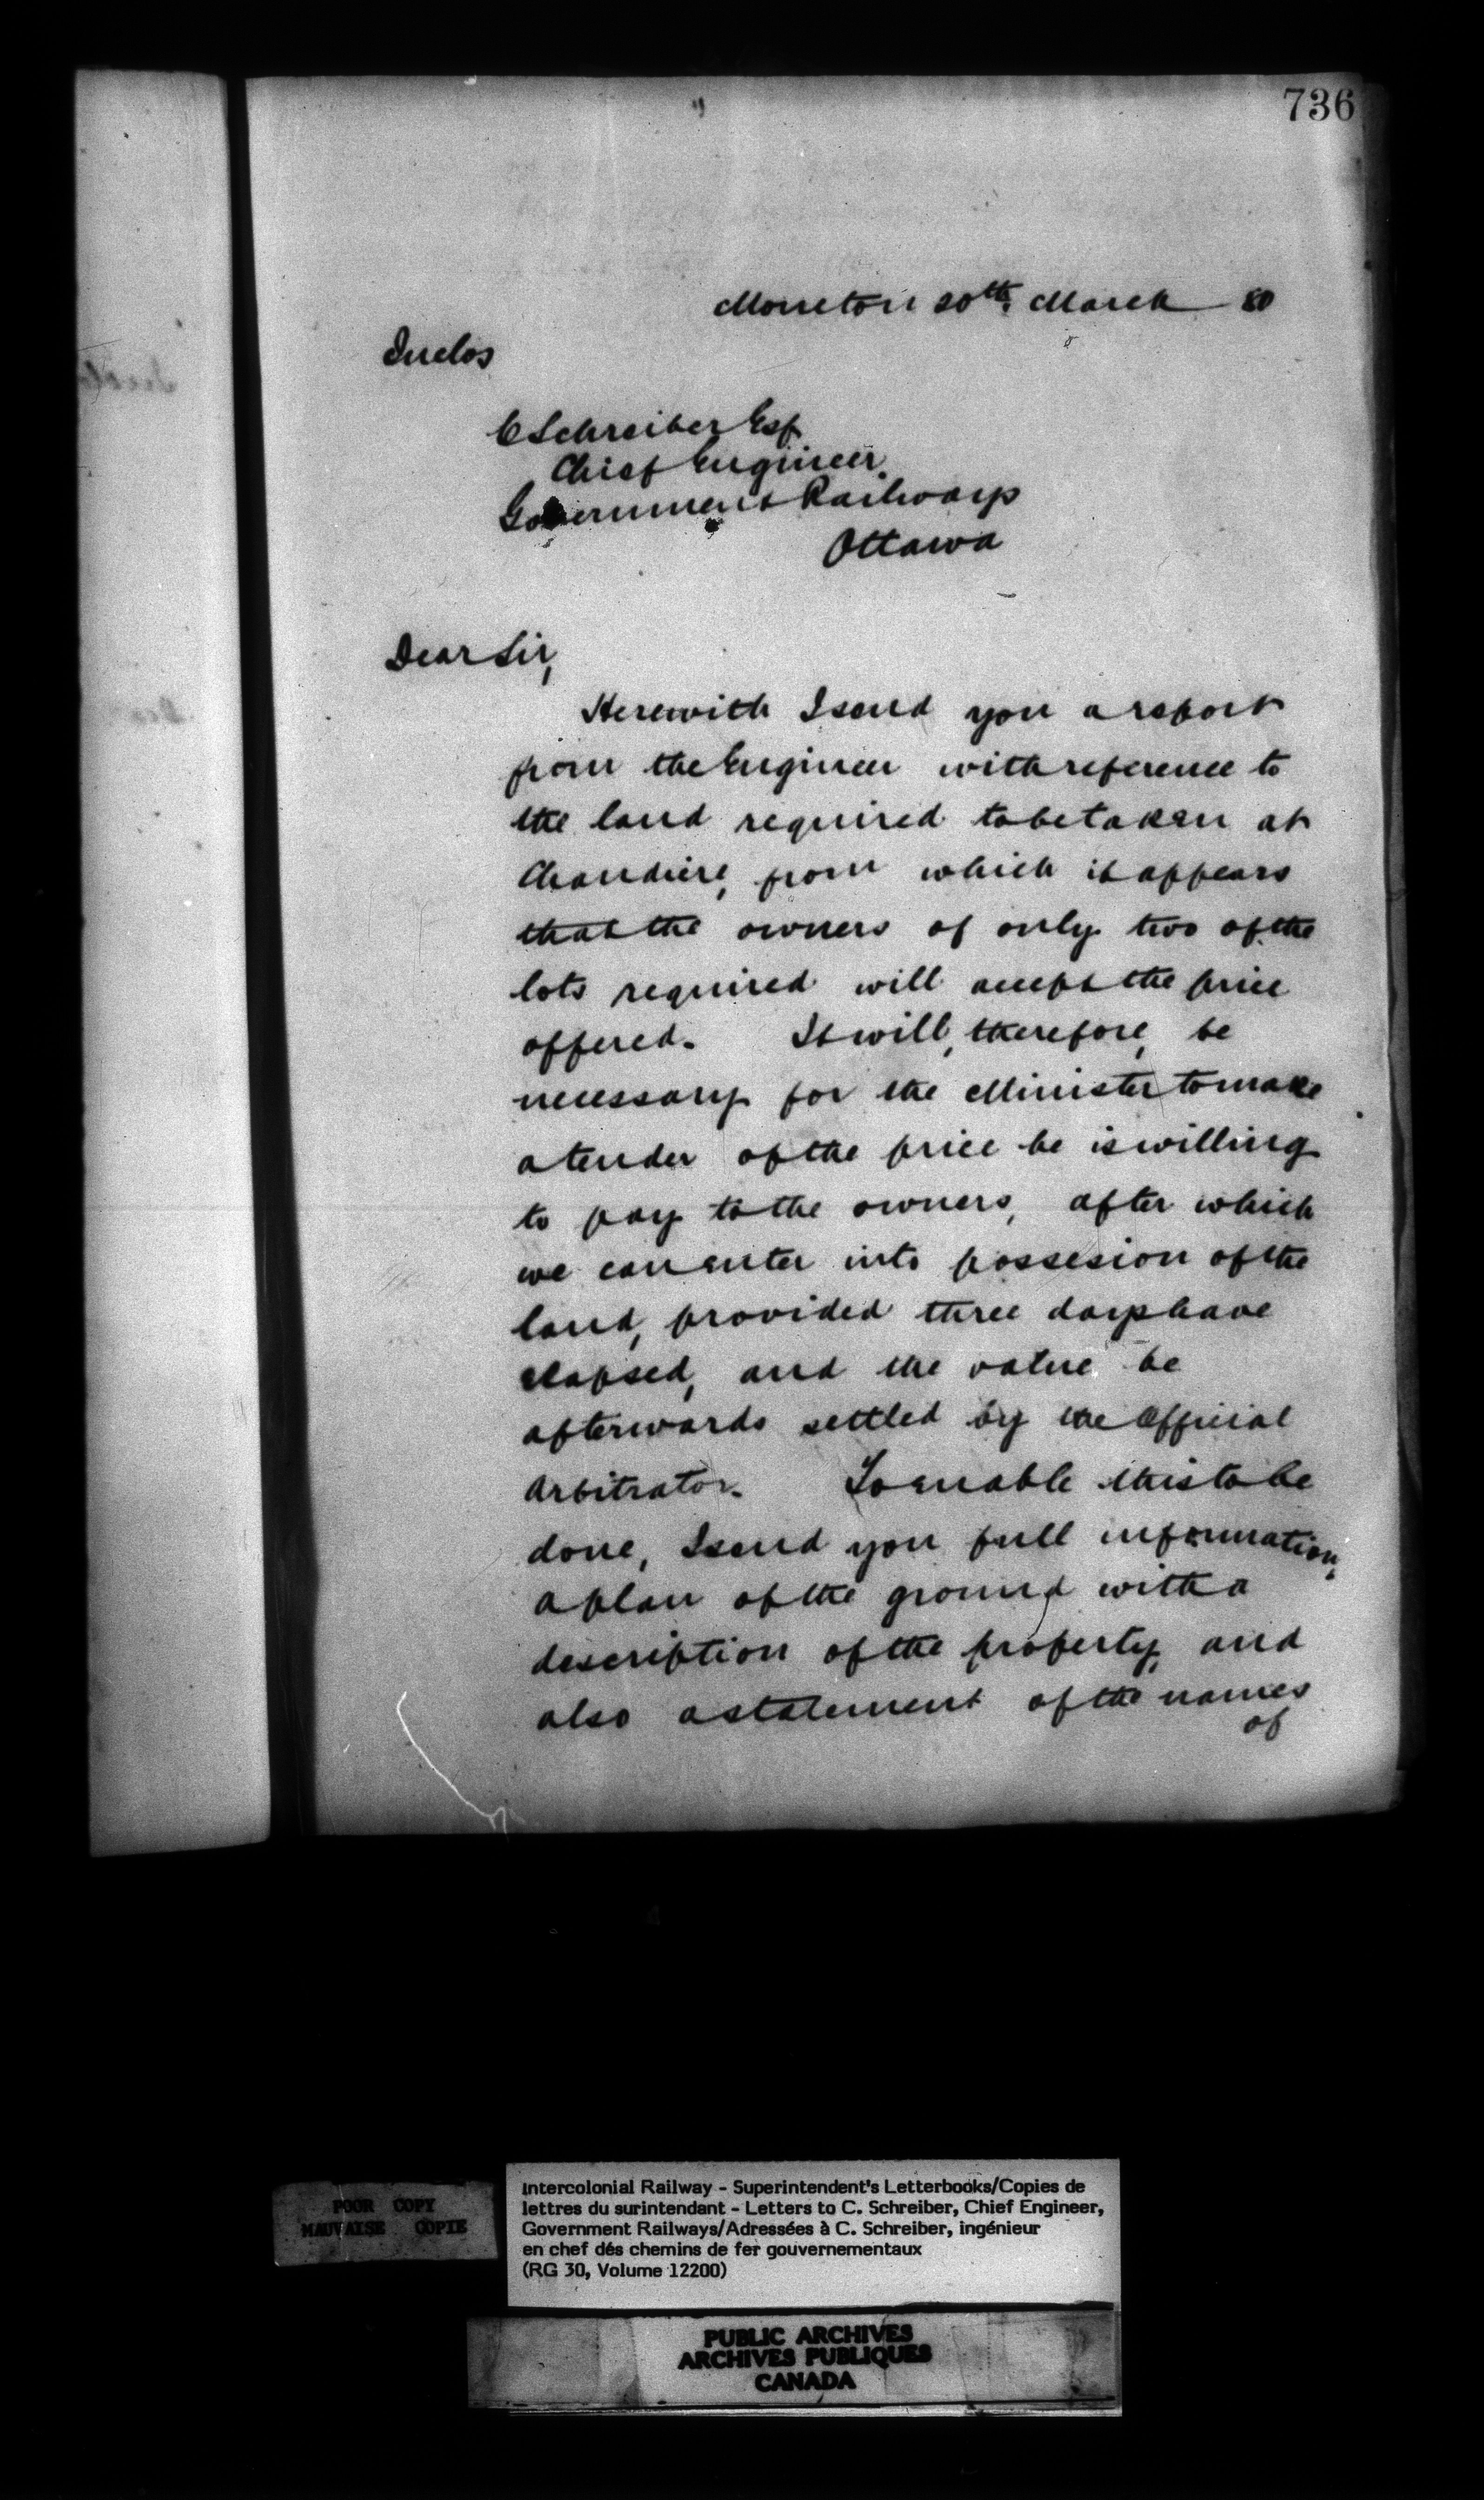 736
Moncton 20th March 80
Inclos
C Schreiber Esq
Chief Engineer
Government Railways
Ottawa
Dear Sir,
Herewith I send you a report
from the Engineer with reference to
the land required to be taken at
Chaudiere, from which it appears
that the owners of only two of the
lots required will accept the price
offered. It will, therefore, be
necessary for the Minister to make
a tender of the price he is willing
to pay to the owners, after which
we can enter into possesion of the
land, provided three days have
elapsed, and the value be
afterwards settled by the Official
Arbitrator. To enable this to be
done, I send you full information,
a plan of the ground with a
description of the property, and
also a statement of the names
of
POOR COPY
MAUVAISE COPIE
Intercolonial Railway - Superintendent's Letterbooks/Copies de
lettres du surintendant - Letters to C. Schreiber, Chief Engineer,
Government Railways/Adressées à C. Schreiber, ingénieur
en chef dés chemins de fer gouvernementaux
(RG 30, Volume 12200)
PUBLIC ARCHIVES
ARCHIVES PUBLIQUES
CANADA